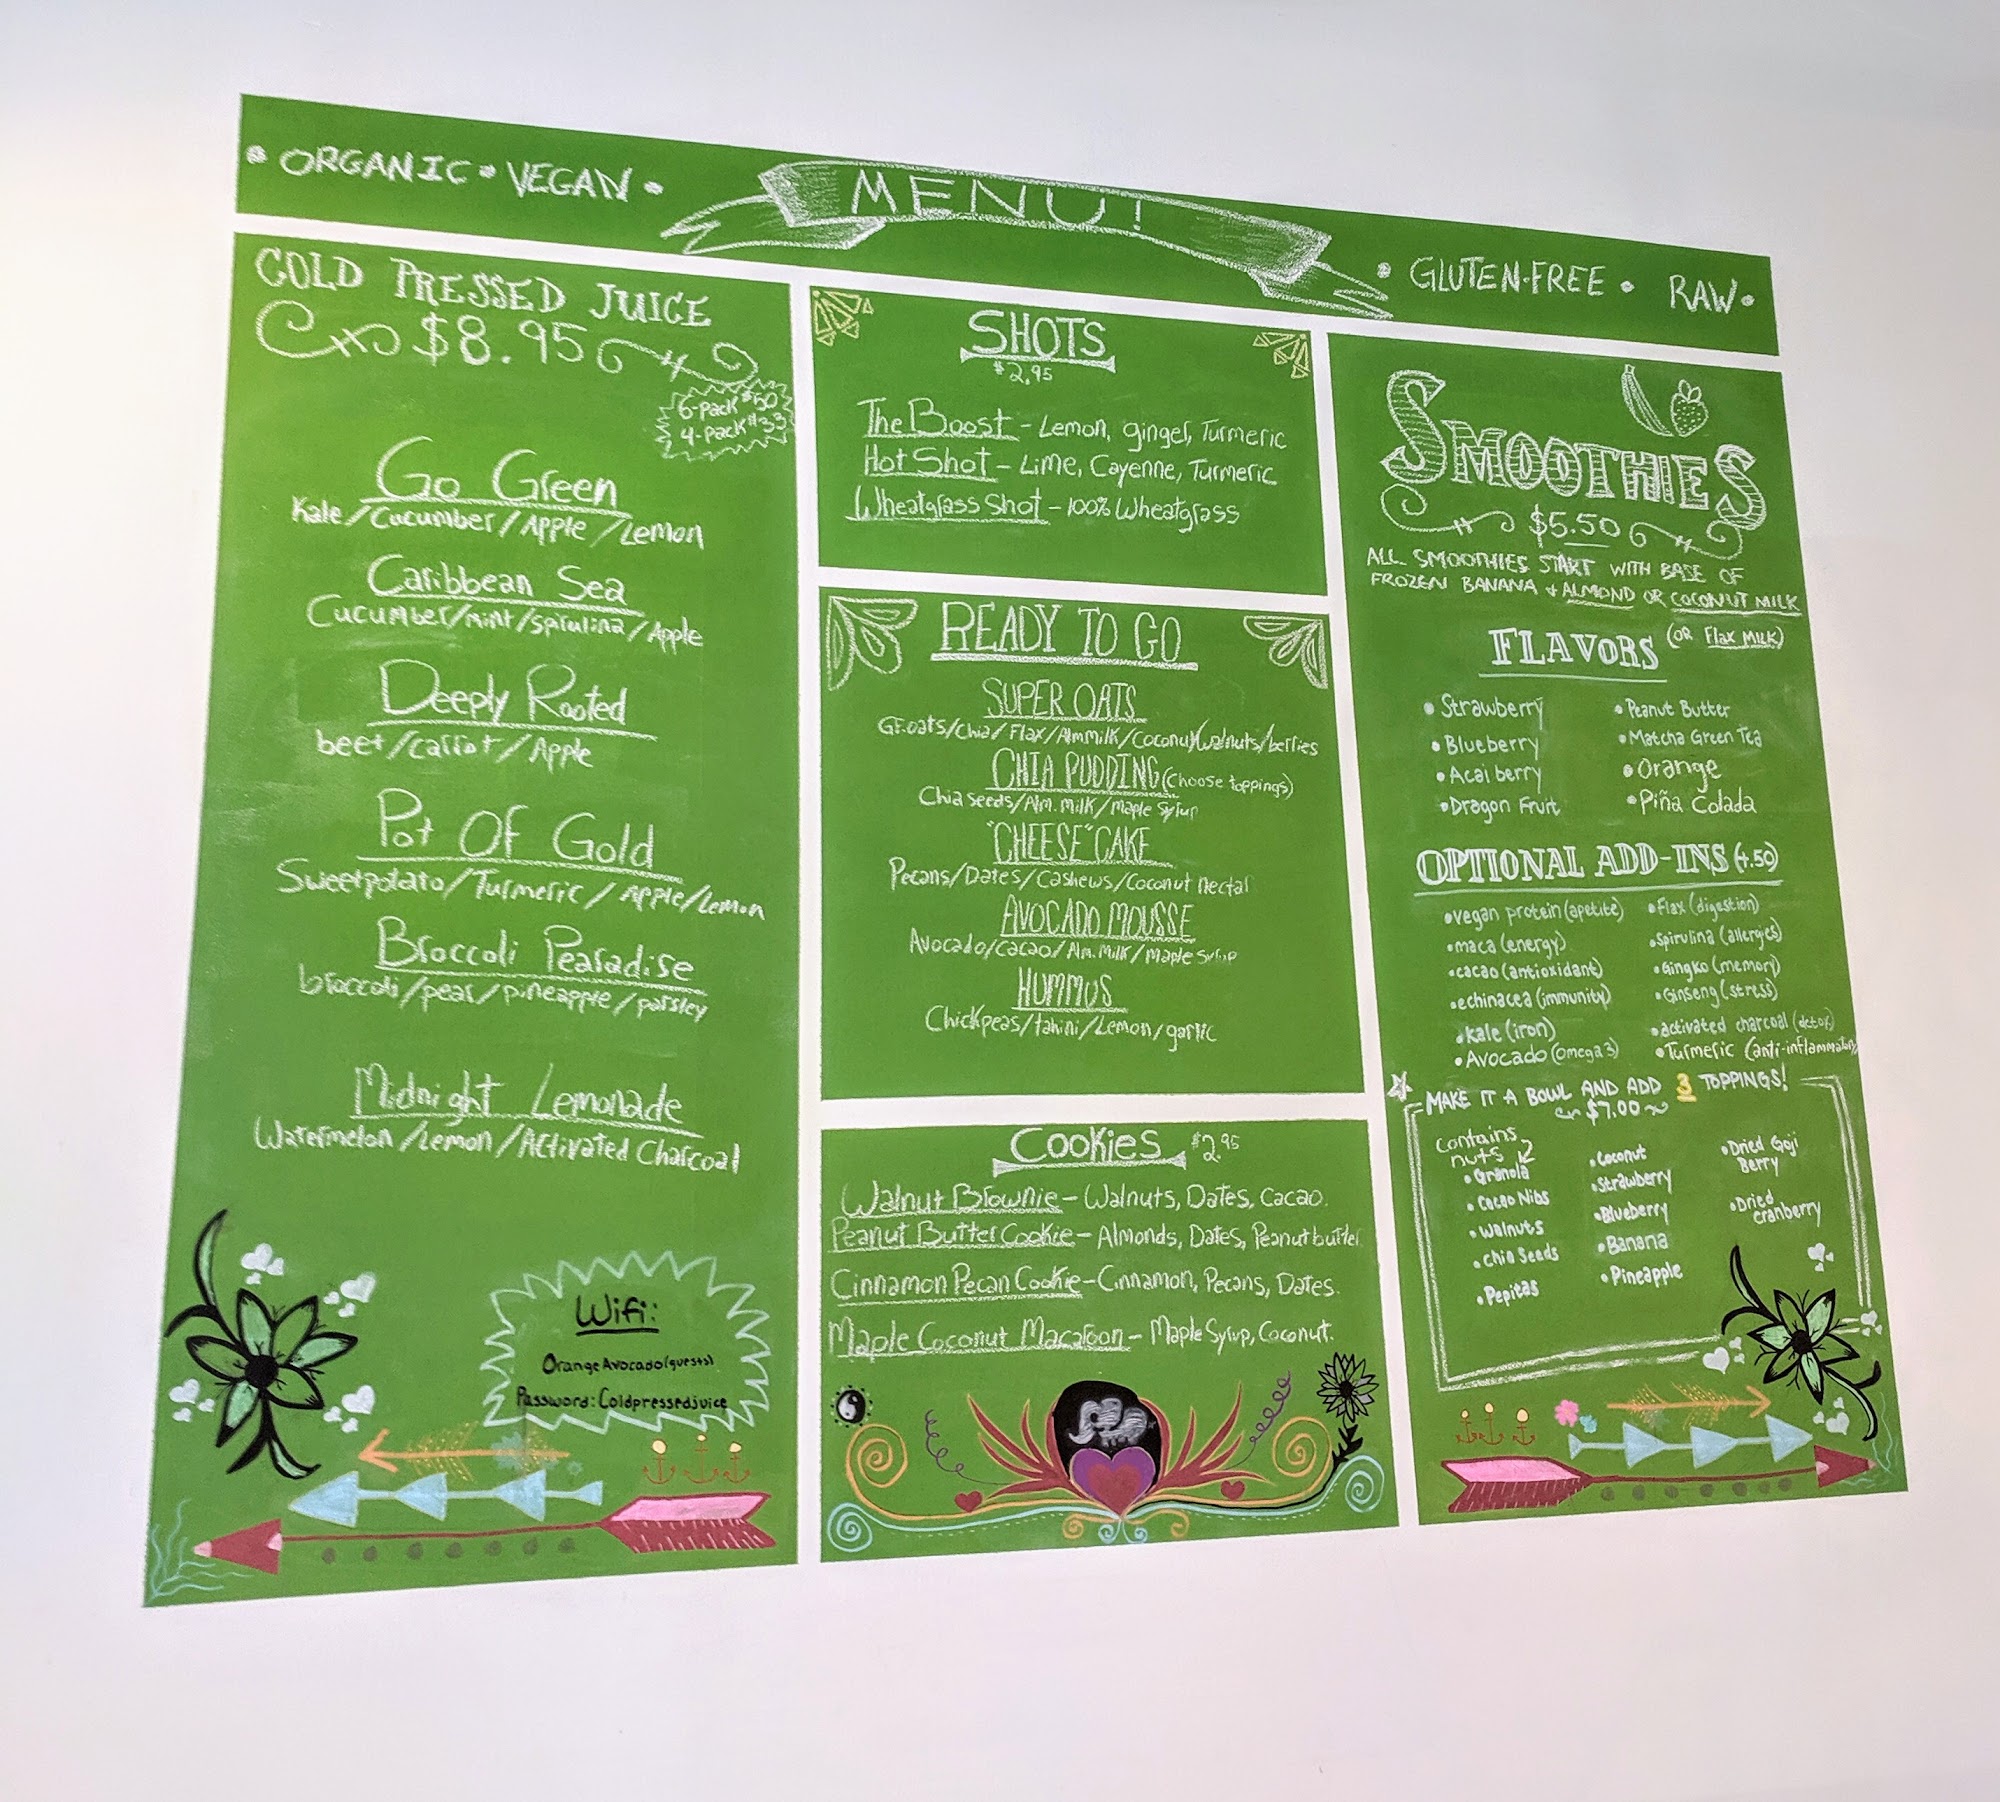 • ORGANIC • VEGAN •
MENU!
• GLUTEN-FREE • RAW •
COLD PRESSED JUICE
$8.95
6-pack $50
4-pack $33
Go Green
Kale/Cucumber/Apple/Lemon
Caribbean Sea
Cucumber/mint/spirulina/Apple
Deeply Rooted
beet/carrot/Apple
Pot Of Gold
Sweetpotato/Turmeric/Apple/Lemon
Broccoli Pearadise
broccoli/pear/pineapple/parsley
Midnight Lemonade
Watermelon/Lemon/Activated Charcoal
Wifi:
OrangeAvocado(guests)
Password: Coldpressedjuice
SHOTS
$2.95
The Boost - Lemon, ginger, Turmeric
Hot Shot - Lime, Cayenne, Turmeric
Wheatgrass Shot - 100% Wheatgrass
READY TO GO
SUPER OATS
GF.oats/Chia/Flax/Alm.milk/Coconut/walnuts/berries
CHIA PUDDING (choose toppings)
Chia seeds/Alm. milk/maple syrup
"CHEESE" CAKE
Pecans/Dates/Cashews/Coconut nectar
AVOCADO MOUSSE
Avocado/Cacao/Alm. Milk/Maple syrup
HUMMUS
Chickpeas/tahini/Lemon/garlic
Cookies $2.95
Walnut Brownie - Walnuts, Dates, Cacao.
Peanut Butter Cookie - Almonds, Dates, Peanut butter
Cinnamon Pecan Cookie - Cinnamon, Pecans, Dates.
Maple Coconut Macaroon - Maple Syrup, Coconut.
SMOOTHIES
$5.50
ALL SMOOTHIES START WITH BASE OF
FROZEN BANANA + ALMOND OR COCONUT MILK
(OR Flax MILK)
FLAVORS
• Strawberry
• Blueberry
• Acai berry
• Dragon Fruit
• Peanut Butter
• Matcha Green Tea
• Orange
• Piña Colada
OPTIONAL ADD-INS (+.50)
• vegan protein (apetite)
• maca (energy)
• cacao (antioxidant)
• echinacea (immunity)
• Kale (iron)
• Avocado (omega 3)
• Flax (digestion)
• Spirulina (allergies)
• Gingko (memory)
• Ginseng (stress)
• activated charcoal (detox)
• Turmeric (anti-inflammatory)
MAKE IT A BOWL AND ADD 3 TOPPINGS!
$7.00
Contains
nuts
• Granola
• Cacao Nibs
• Walnuts
• chia Seeds
• Pepitas
• Coconut
• Strawberry
• Blueberry
• Banana
• Pineapple
• Dried Goji
Berry
• Dried
cranberry